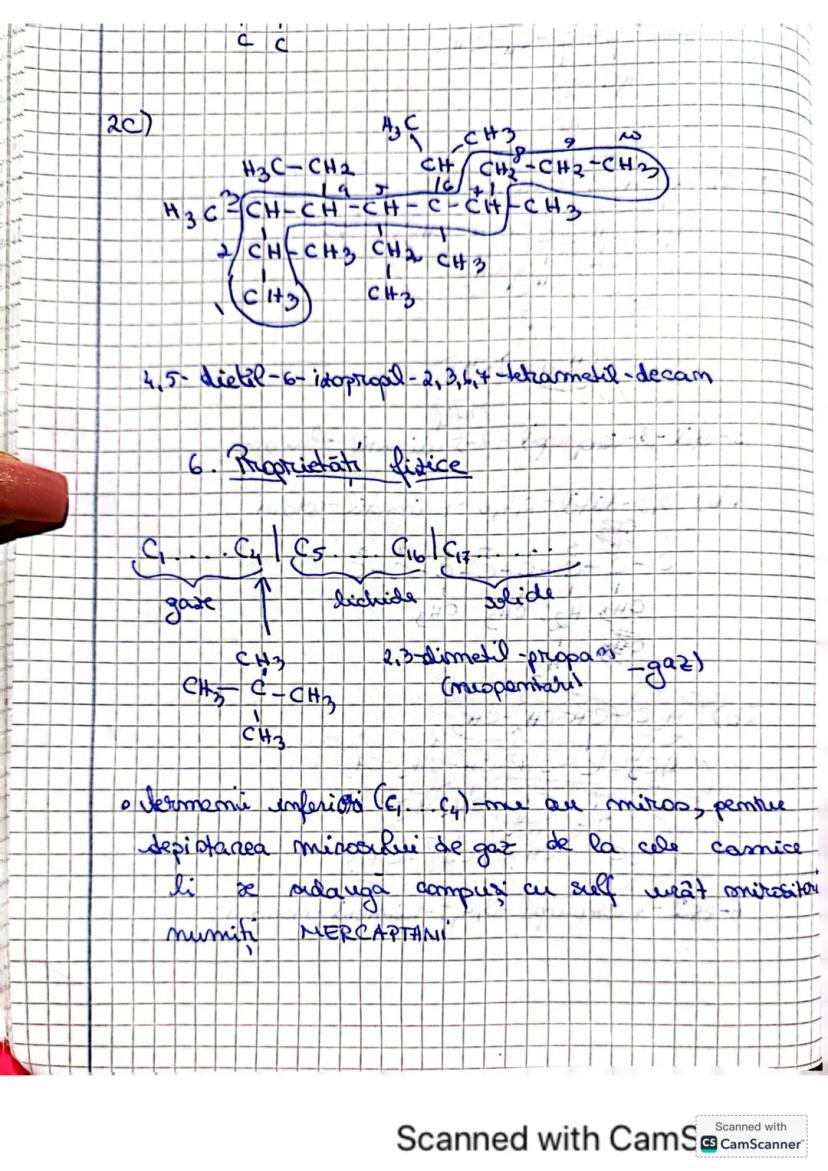 C C
2C)
H3C CH3 8 9 10
H3C-CH2 CH CH2-CH2-CH3
4 5 6 7
H3C-3CH-CH-CH-C-CH-CH3
2 CH-CH3 CH2 CH3
1 CH3 CH3
4,5-dietil-6-izopropil-2,3,6,7-tetrametil-decan
6. Proprietăți fizice
C1.....C4 | C5.....C16 | C17......
gaze lichide solide
CH3 2,3-dimetil-propan -gaz)
CH3-C-CH3 (neopentan
CH3
• Termenii inferiori (C1...C4)-nu au miros, pentru
depistarea mirosului de gaz de la cele casnice
li se adaugă compuși cu sulf urât mirositori
numiți MERCAPTANI
Scanned with CamS
Scanned with
CS CamScanner